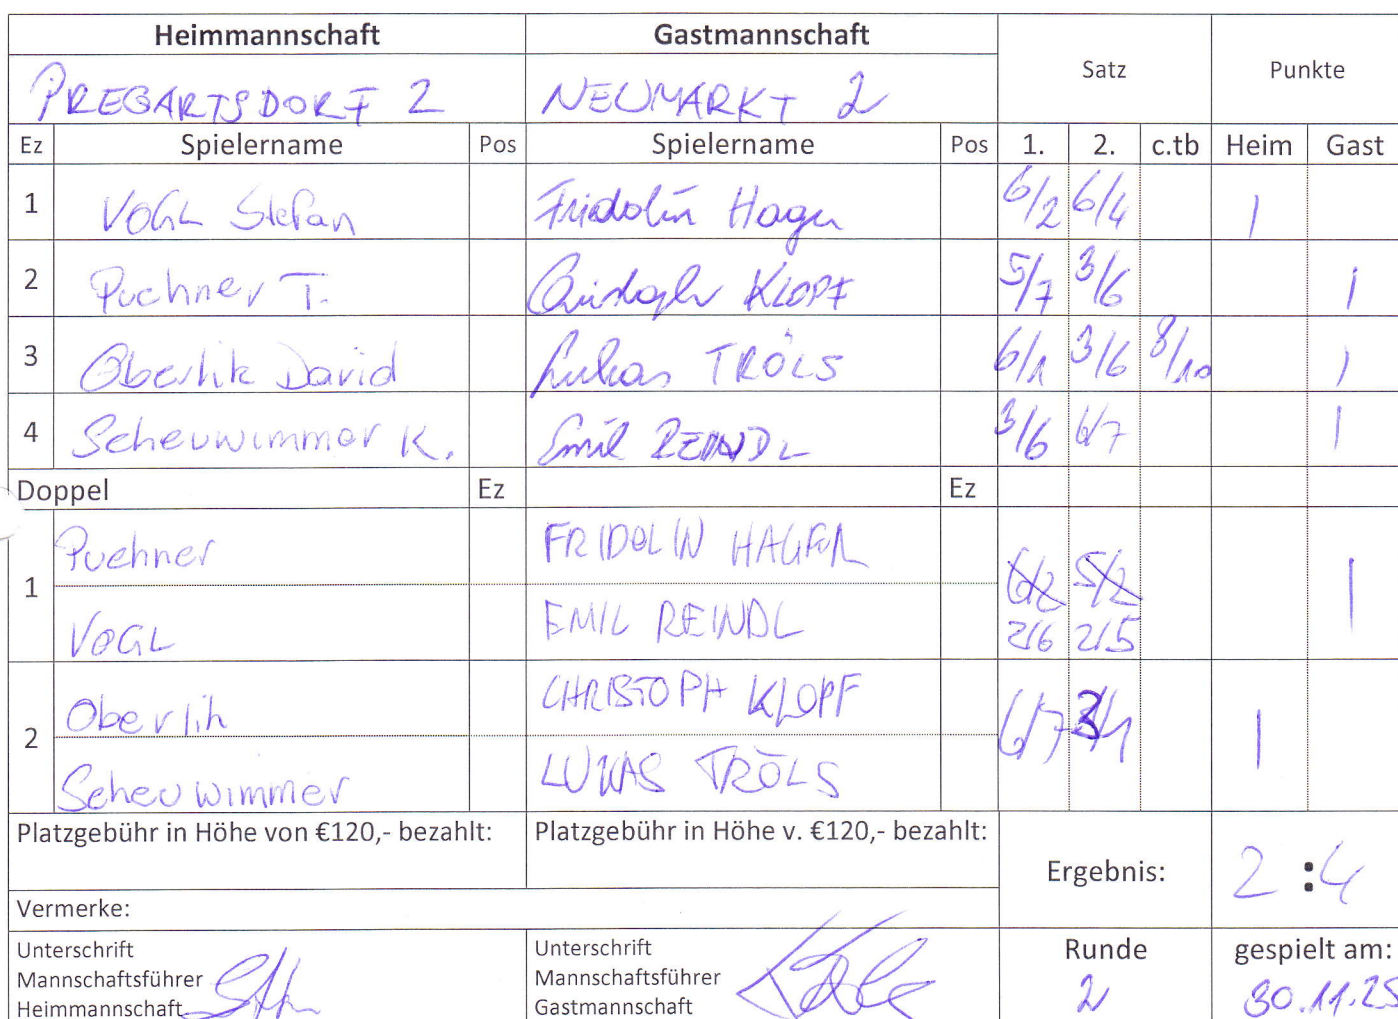 Heimmannschaft Gastmannschaft Satz Punkte
PREGARTSDORF 2 NEUMARKT 2
Ez Spielername Pos Spielername Pos 1. 2. c.tb Heim Gast
1 VOGL Stefan Fridolin Hagn 6/2 6/4 1
2 Puchner T. KLOPF 5/7 3/6 1
3 Oberlik David Lukas TRÖLS 6/1 3/6 8/10 1
4 Scheuwimmer K. Emil REINDL 3/6 6/7 1
Doppel Ez Ez
1
Puchner FRIDOLIN 6/2 5/2 1
VOGL EMIL REINDL 2/6 2/5
2
Oberlih CHRISTOPH KLOPF 6/7 1
Scheuwimmer LUKAS TRÖLS
Platzgebühr in Höhe von €120,- bezahlt: Platzgebühr in Höhe v. €120,- bezahlt:
Ergebnis: 2 : 4
Vermerke:
Unterschrift Unterschrift Runde gespielt am:
Mannschaftsführer Mannschaftsführer
Heimmannschaft Gastmannschaft 2 30.11.25